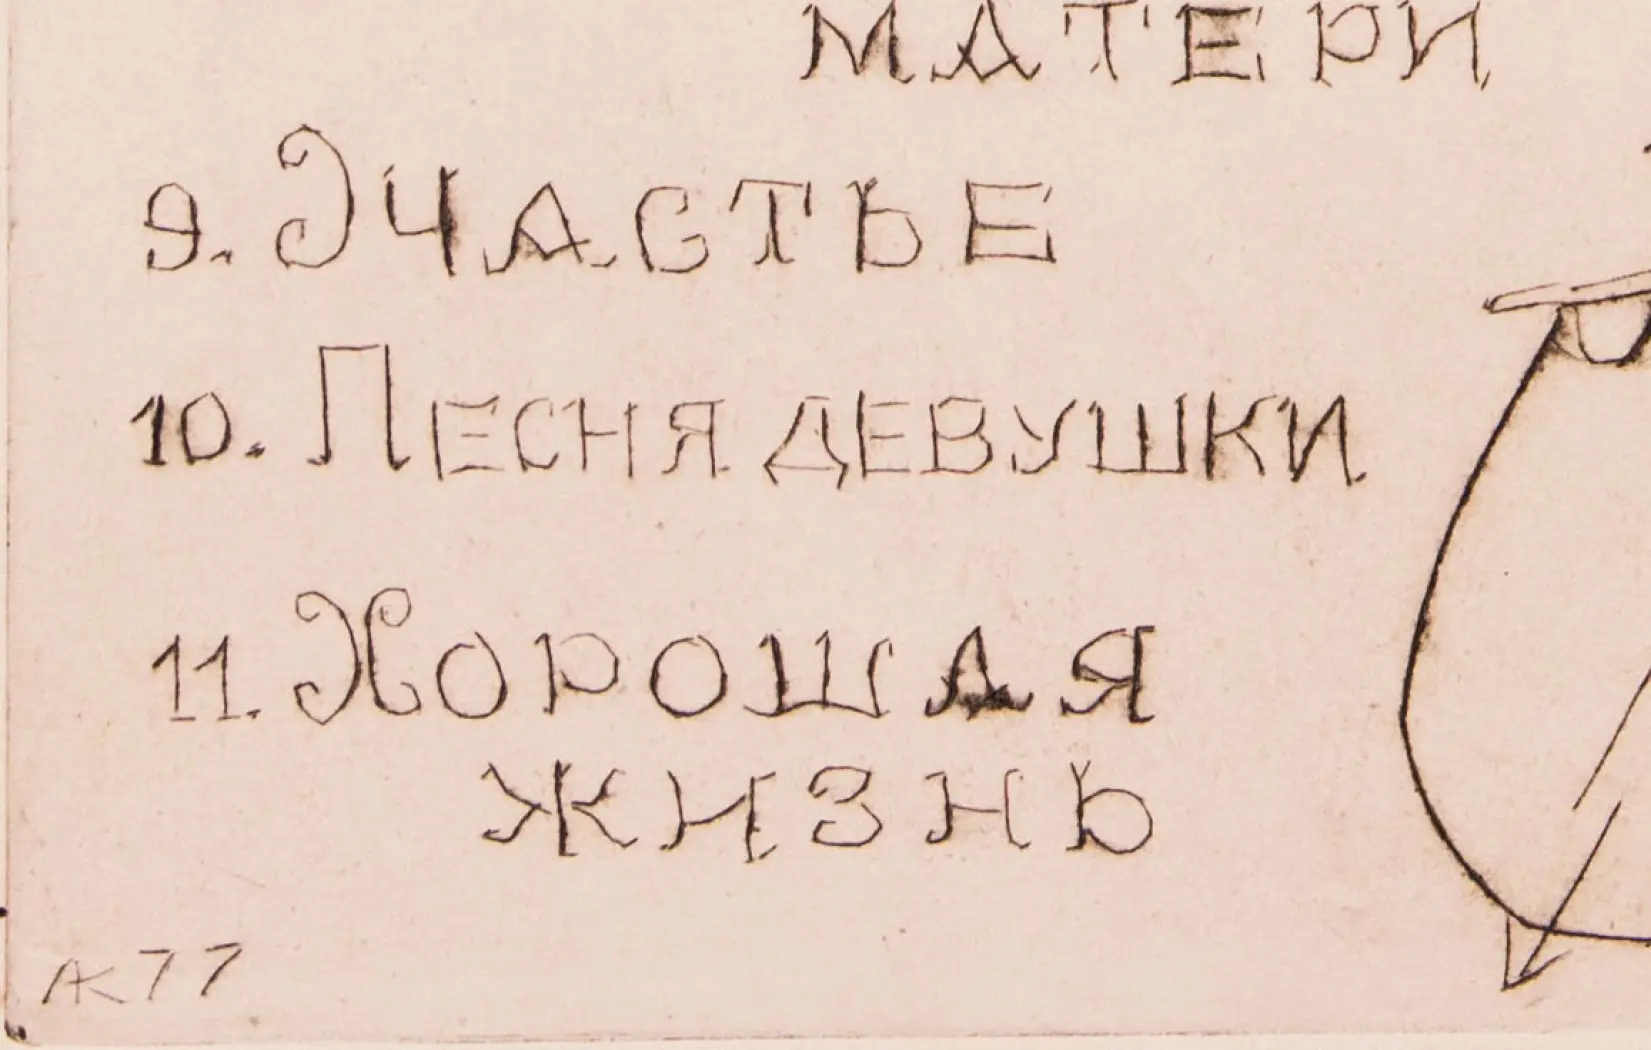 МАТЕРИ
9. СЧАСТЬЕ
10. ПЕСНЯ ДЕВУШКИ
11. ХОРОШАЯ
ЖИЗНЬ
АК 77